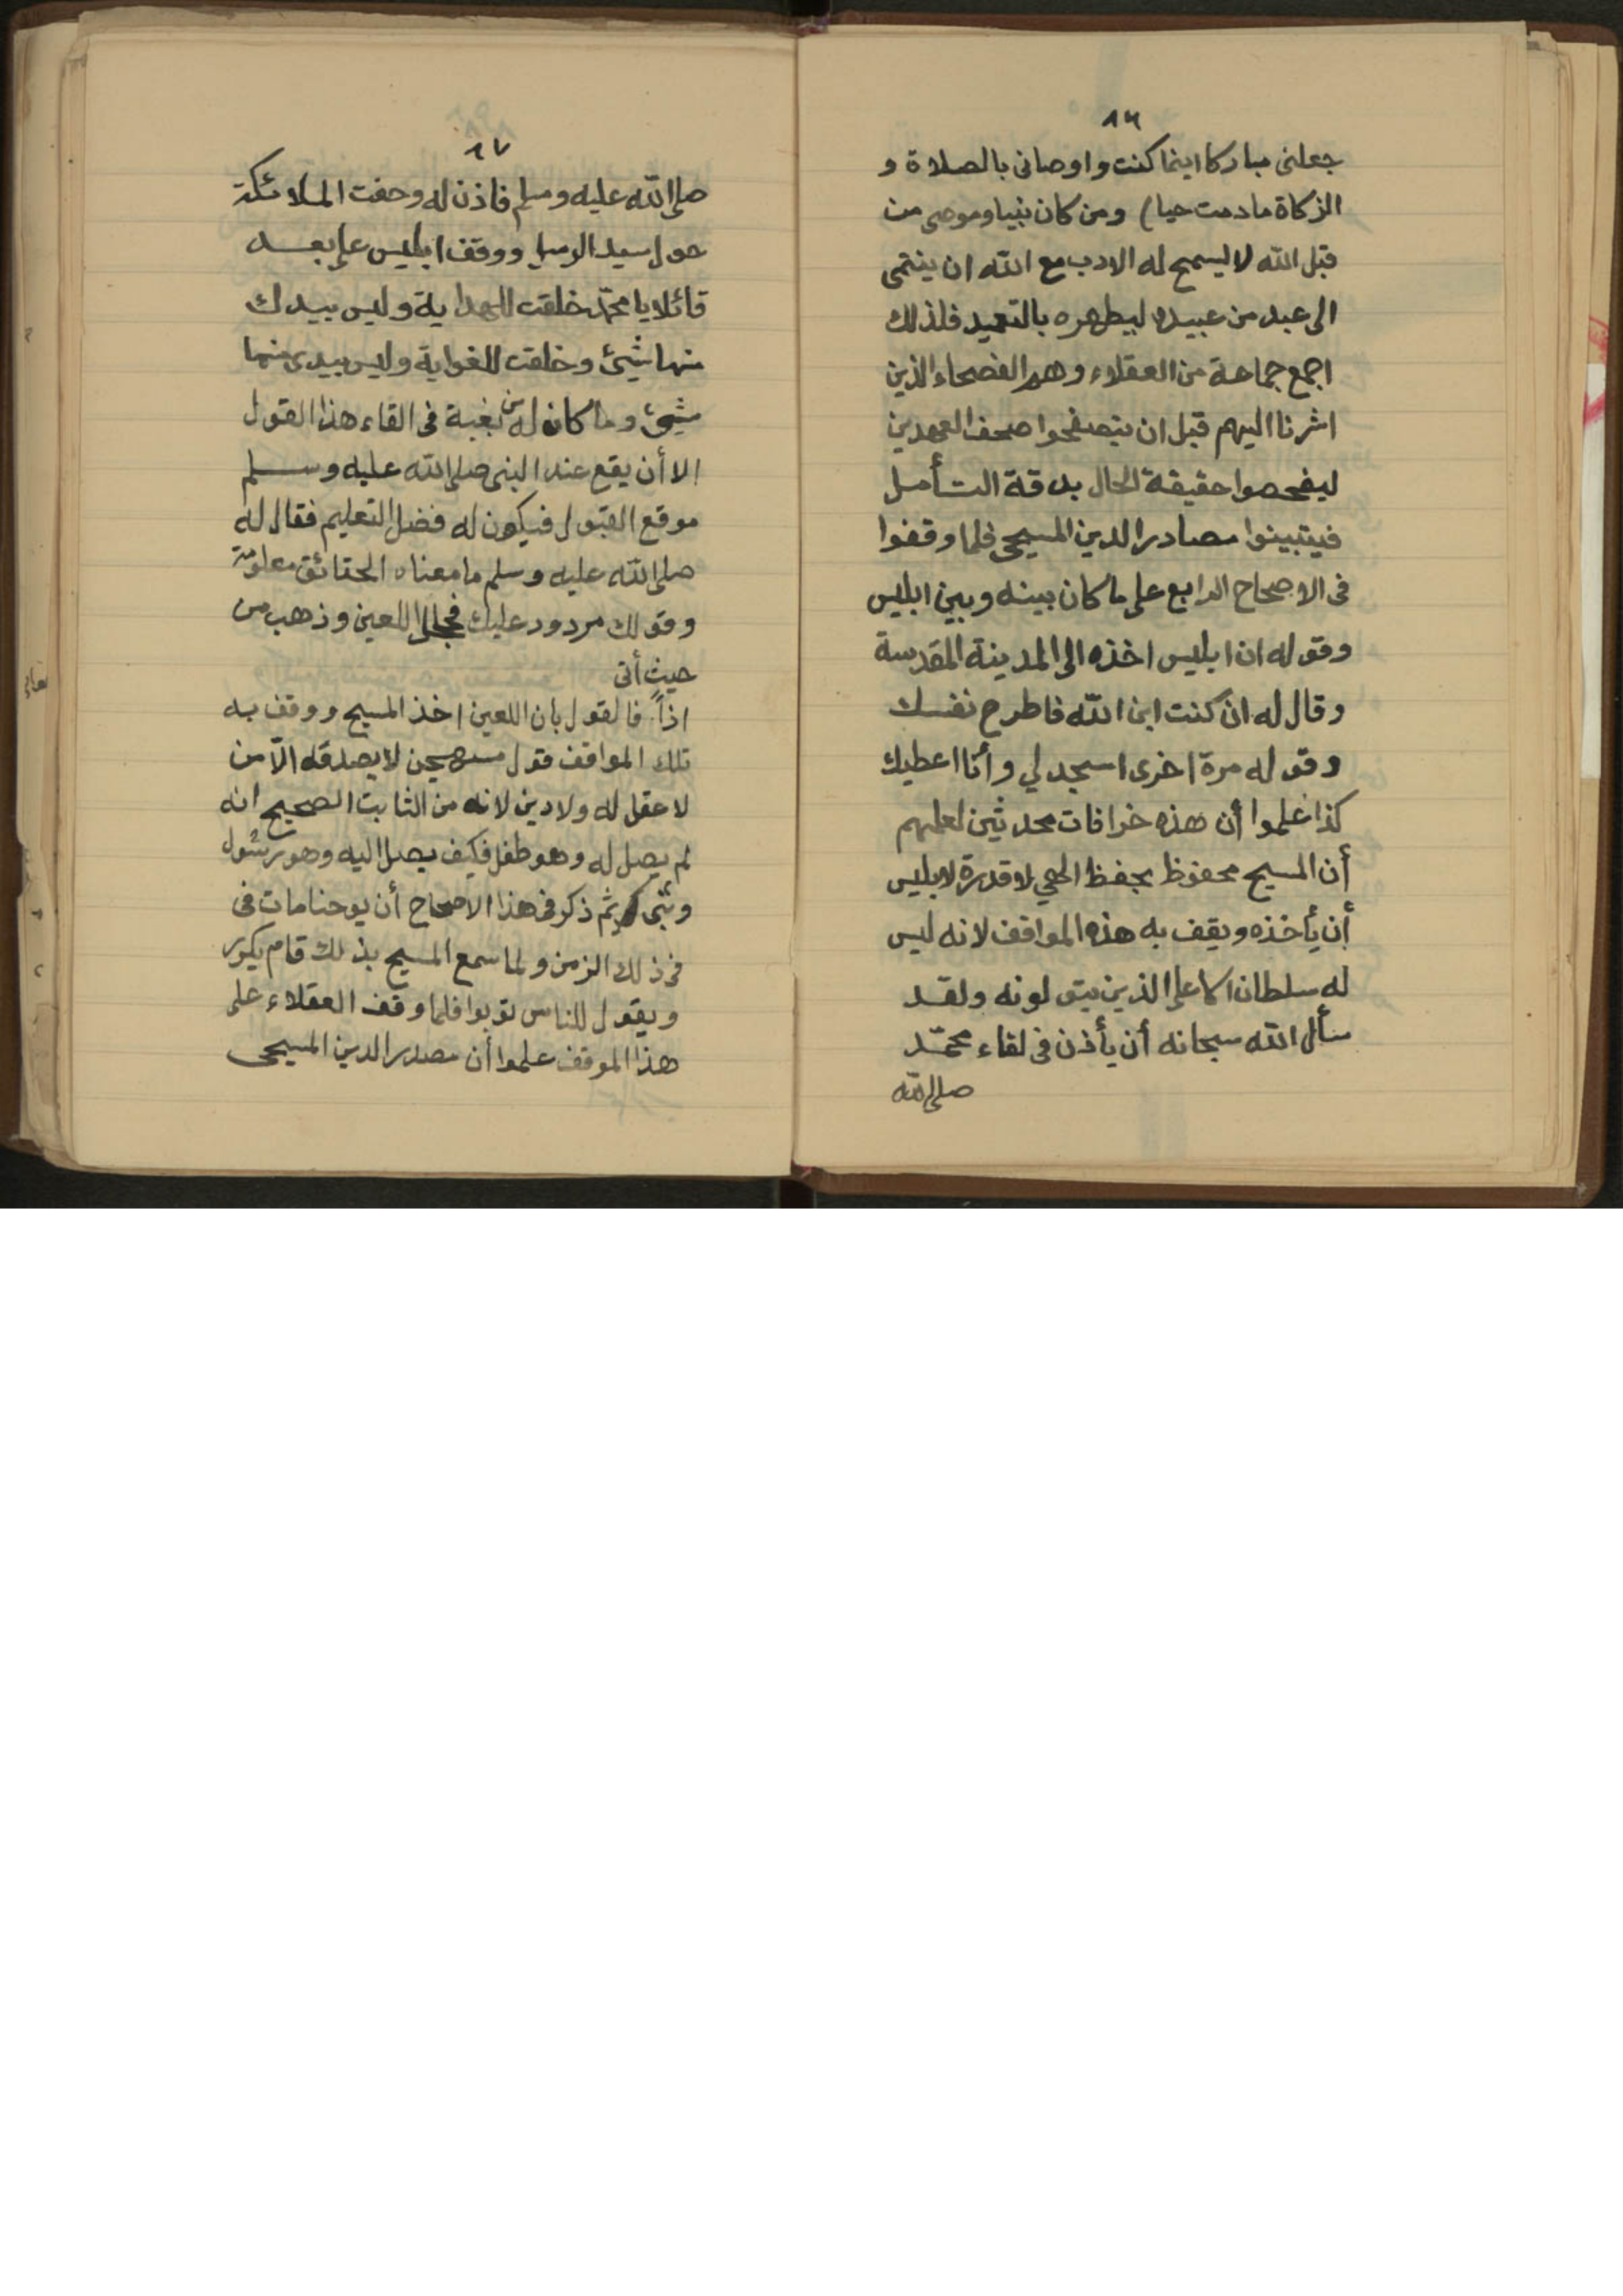 ١٦
جعلنى مباركا اينما كنت واوصانى بالصلاة و
الزكاة مادمت حيا) ومن كان نبيا وموصى من
قبل الله لا ليسمح له الادب مع الله ان ينتمى
الى عبد من عبيده ليطهره بالتعميد فلذلك
اجمع جماعة من العقلاء وهم الفصحاء الذين
اشرنا اليهم قبل ان يتصفحوا صحف العهدين
ليفحصوا حقيقة الحال بدقة التأمل
فيتبينوا مصادر الدين المسيحى فلما وقفوا
فى الاصحاح الرابع على ما كان بينه وبين ابليس
وقوله ان ابليس اخذه الى المدينة المقدسة
وقال له ان كنت ابن الله فاطرح نفسك
وقوله مرة اخرى اسجد لي وأنا اعطيك
كذا علموا أن هذه خرافات محدثين لعلمهم
أن المسيح محفوظ بحفظ الهي لا قدرة لابليس
أن يأخذه ويقف به هذه المواقف لانه ليس
له سلطان الا على الذين يتولونه ولقد
سأل الله سبحانه أن يأذن فى لقاء محمّد
صلى الله
١٧
صلى الله عليه وسلم فاذن له وحفت الملائكة
حول سيد الرسل ووقف ابليس على بعد
قائلا يا محمّد خلقت للهداية وليس بيدك
منها شيئ وخلقت للغواية وليس بيدى منها
شيئ وما كان له من بغية فى القاء هذا القول
الا أن يقع عند النبى صلى الله عليه وسلم
موقع القبول فيكون له فضل التعليم فقال له
صلى الله عليه وسلم ما معناه الحقائق معلومة
وقولك مردود عليك فخجل اللعين وذهب من
حيث أتى
اذاً. فالقول بان اللعين اخذ المسيح ووقف به
تلك المواقف قول مستهجن لا يصدقه الاّ من
لا عقل له ولا دين لانه من الثابت الصحيح انه
لم يصل له وهو طفل فكيف يصل اليه وهو رسول
ونبى كريم ثم ذكر فى هذا الاصحاح أن يوحنا مات فى
فى ذلك الزمن ولما سمع المسيح بذلك قام يكرر
ويقول للناس توبوا فلما وقف العقلاء على
هذا الموقف علموا أن مصدر الدين المسيحى